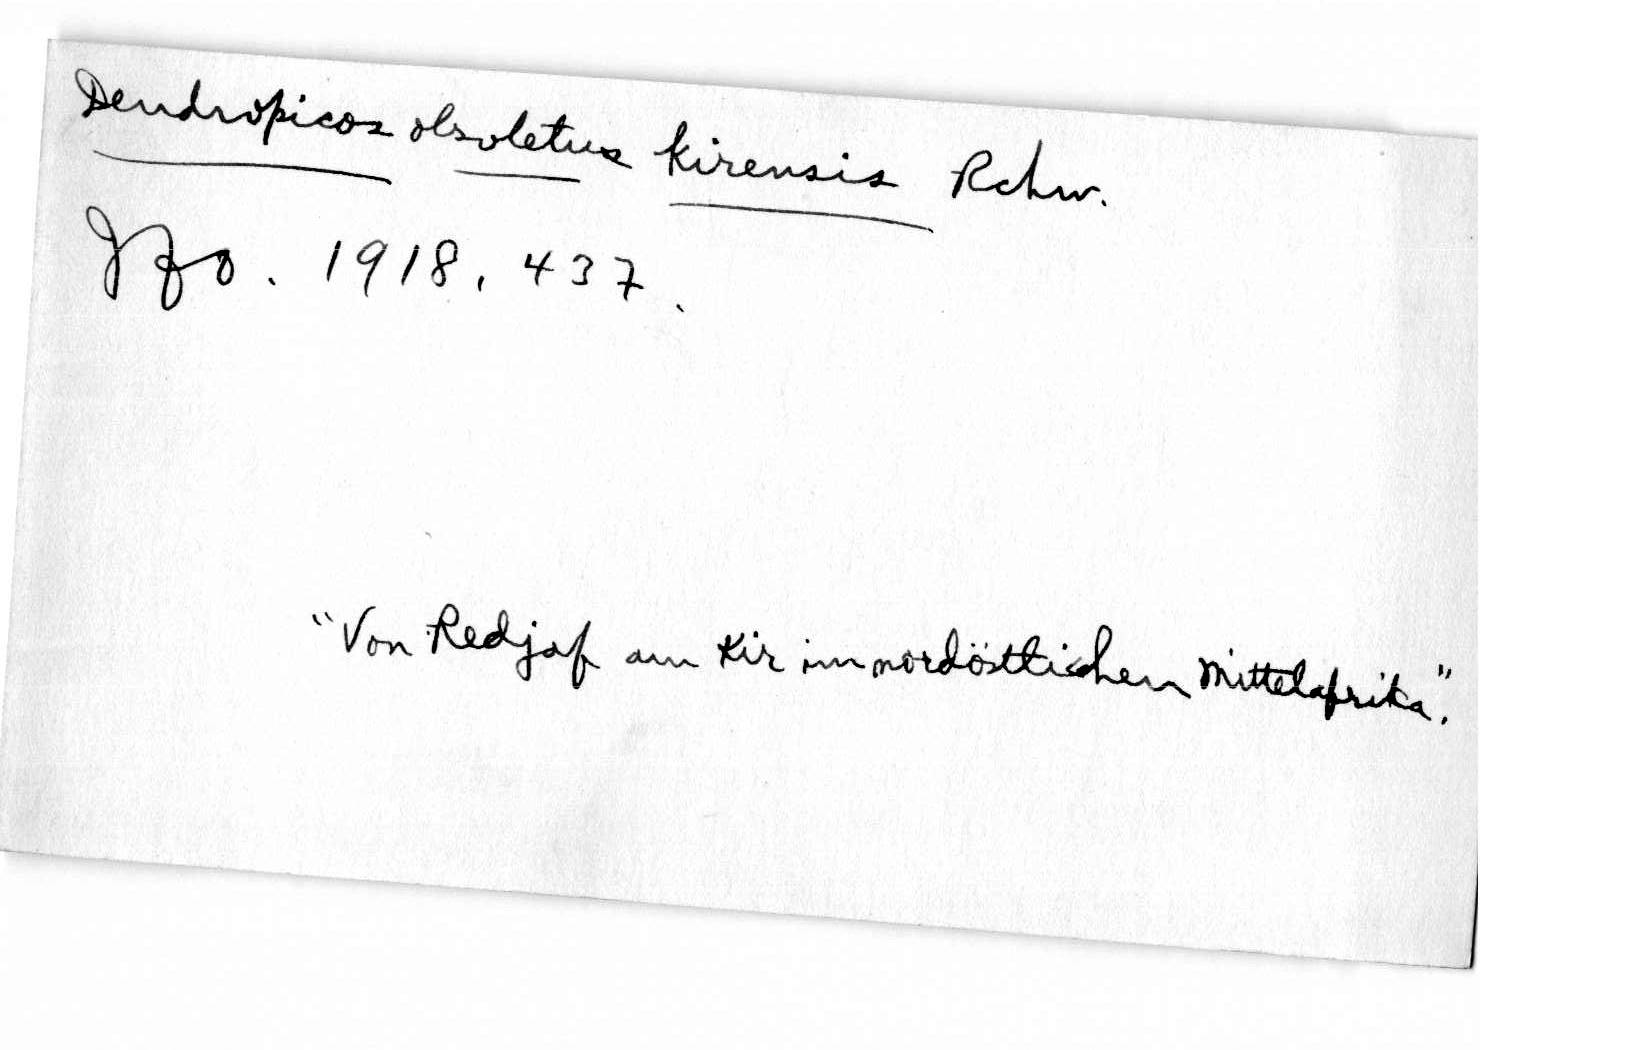 Dendropicos obsoletus kirensis Rchw.
Jfo. 1918, 437.
"Von Redjaf am Kir im nordöstlichen Mittelafrika".